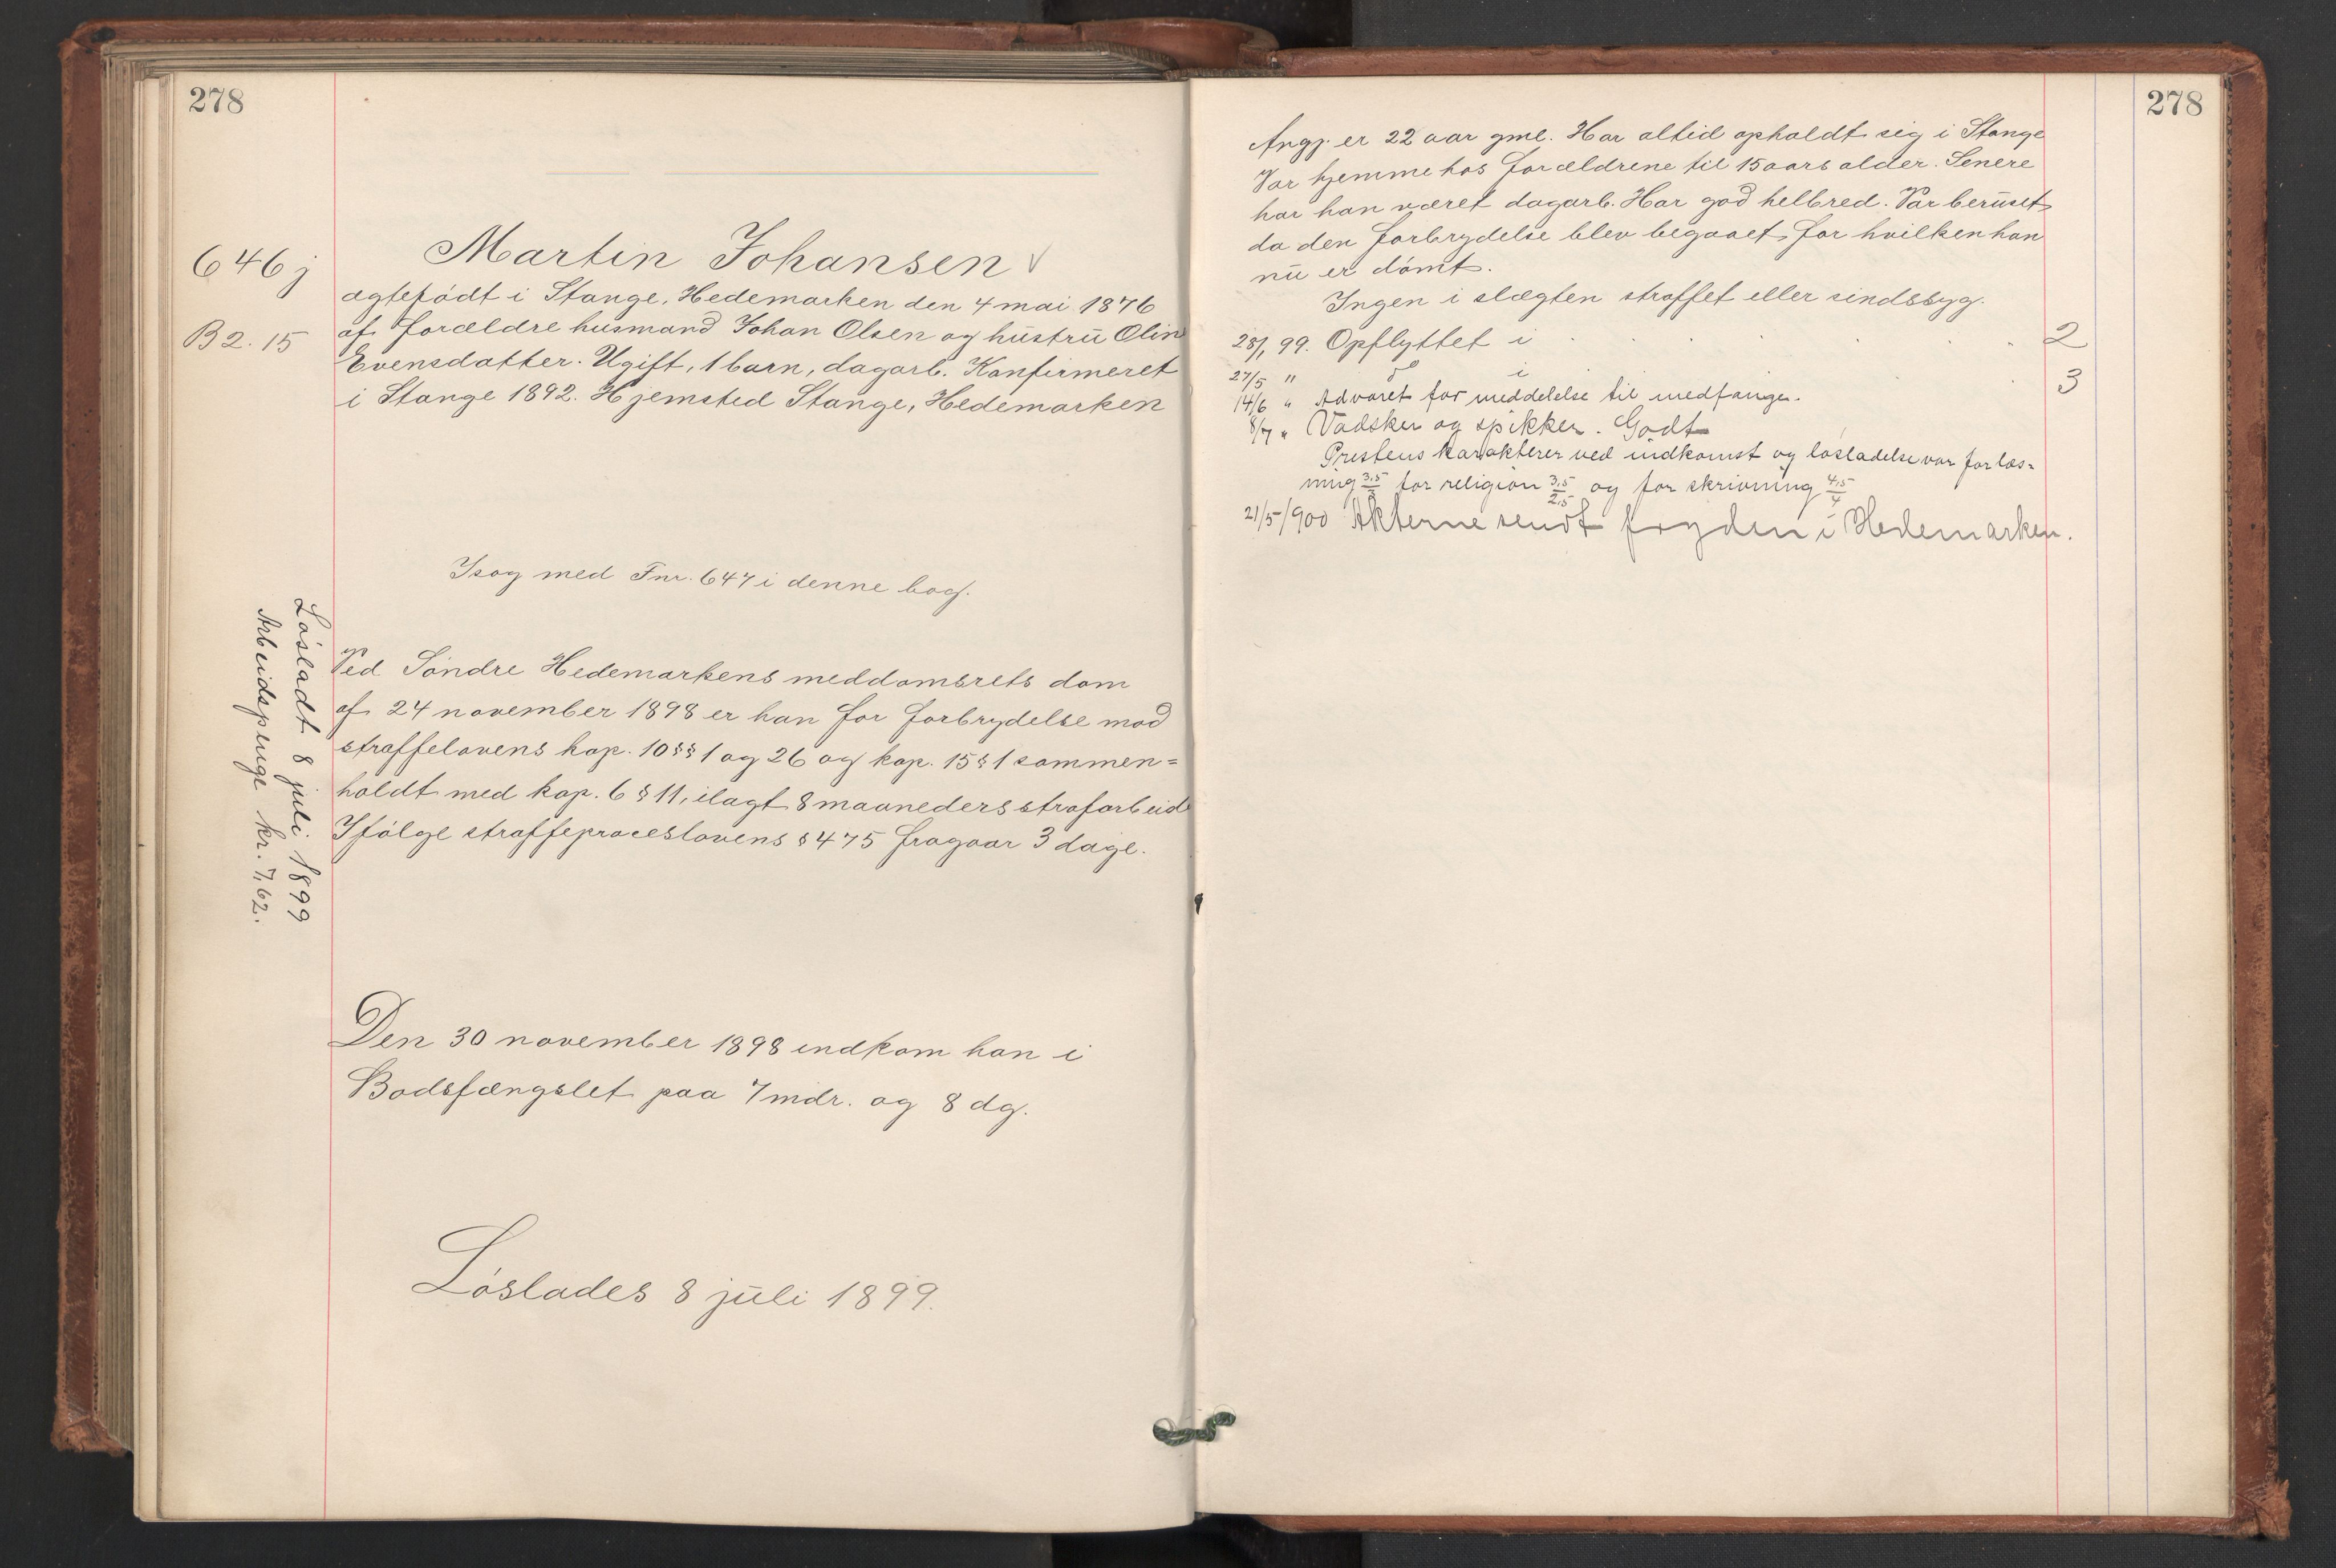 278
646 j
B 2. 15
Martin Johansen
ægtefødt i Stange, Hedemarken den 4 mai 1876
af forældre husmand Johan Olsen og hustru Olin
Evensdatter. Ugift, 1 barn, dagarb. Konfirmeret
i Stange 1892. Hjemsted Stange, Hedemarken
Isag med Fnr. 647 i denne bog.
Løsladt 8 juli 1899
Arbeidspenge kr. 7,62.
Ved Søndre Hedemarkens meddomsrets dom
af 24 november 1898 er han for forbrydelse mod
straffelovens kap. 10 §§ 1 og 26 og kap. 15 § 1 sammen=
holdt med kap. 6 § 11, ilagt 8 maaneders strafarbeid
Ifølge straffeproceslovens § 475 fragaar 3 dage.
Den 30 november 1898 indkom han i
Bodsfængslet paa 7 mdr. og 8 dg.
Løslades 8 juli 1899.
278
Angj. er 22 aar gml. Har altid opholdt sig i Stange
Var hjemme hos forældrene til 15 aars alder. Senere
har han været dagarb. Har god helbred. Var beruset
da den forbrydelse blev begaaet, for hvilken han
nu er dømt.
Ingen i slægten straffet eller sindssyg.
28/1 99. Opflyttet i 2
27/5 " do i 3
14/6 " Advaret for meddelelse til medfange.
8/7 " Vadsker og spikker. Godt
Prestens karakterer ved indkomst og løsladelse var for læs=
ning 3,5/3 for religion 3,5/2,5 og for skrivning 4,5/4
21/5/900 Akterne sendt fogden i Hedemarken.